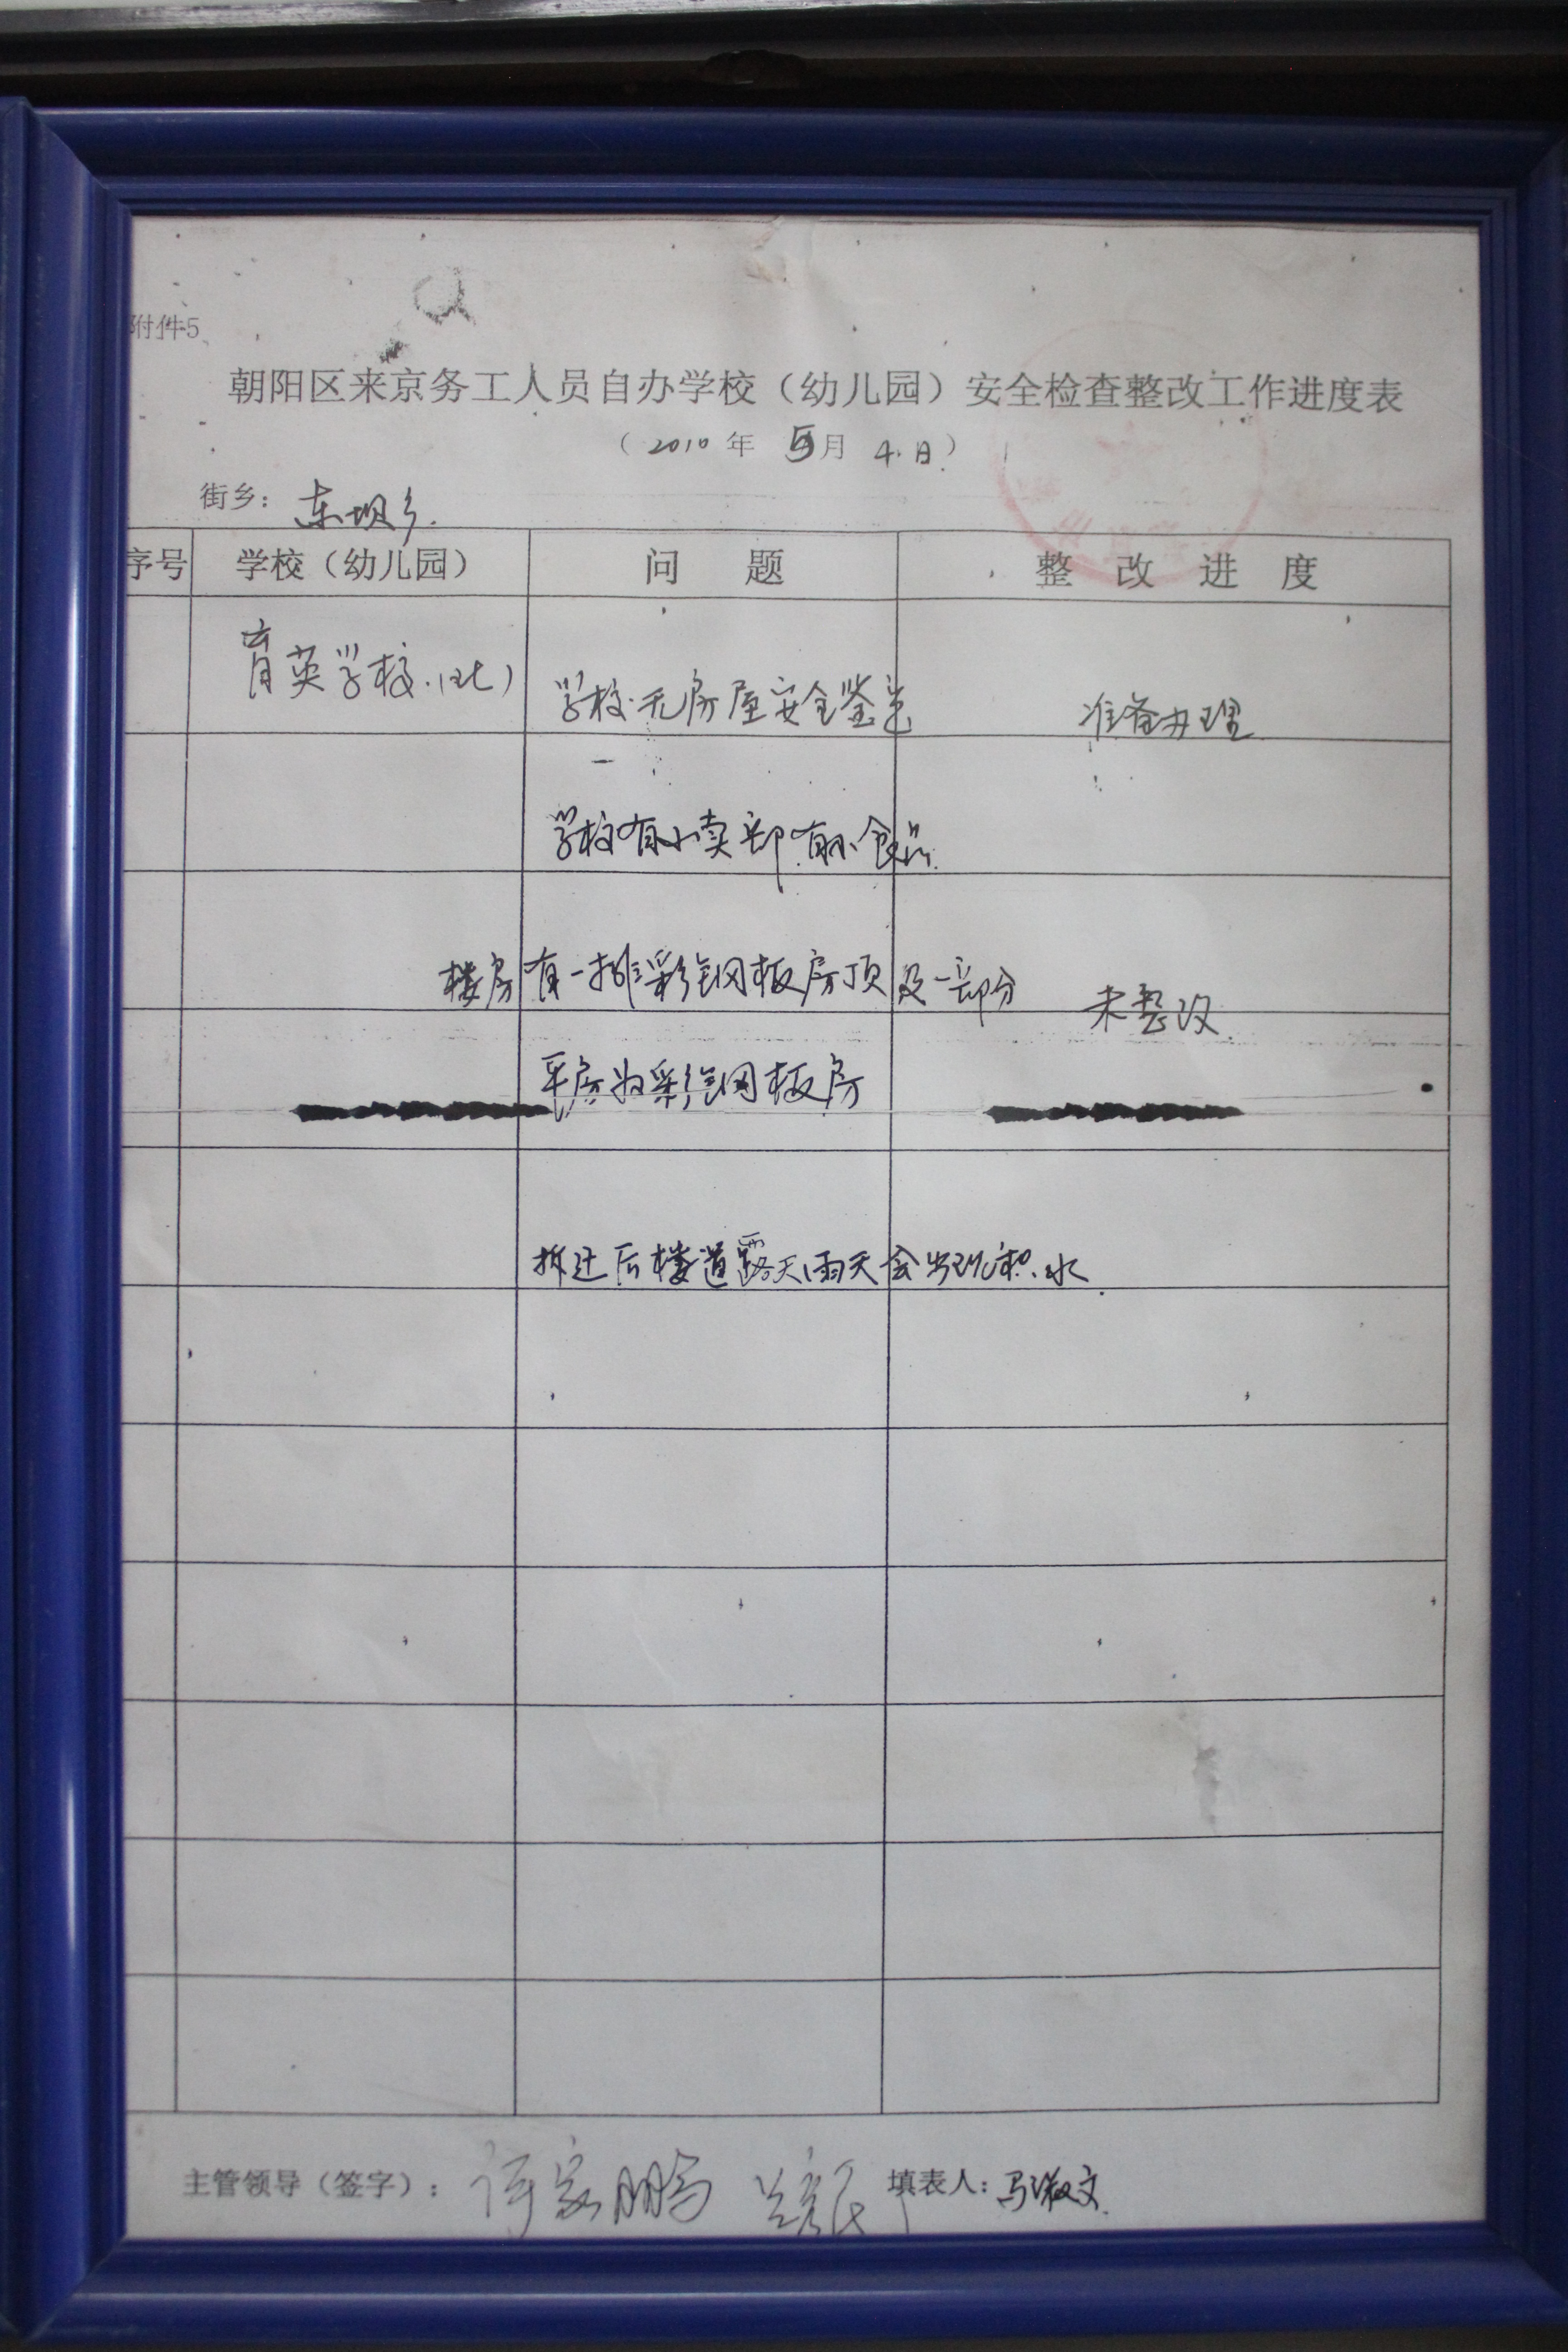 附件5
朝阳区来京务工人员自办学校（幼儿园）安全检查整改工作进度表
（2010年 5月 4日）
街乡：东坝乡.
序号 学校（幼儿园） 问 题 整 改 进 度
育英学校（北） 学校无房屋安全鉴定 准备办理
学校有小卖部有小食品.
楼房有一排彩钢板房顶及一部分 未整改
平房为彩钢板房
拆迁后楼道露天雨天会出现积水
主管领导（签字）：许家鹏 填表人：马淑文